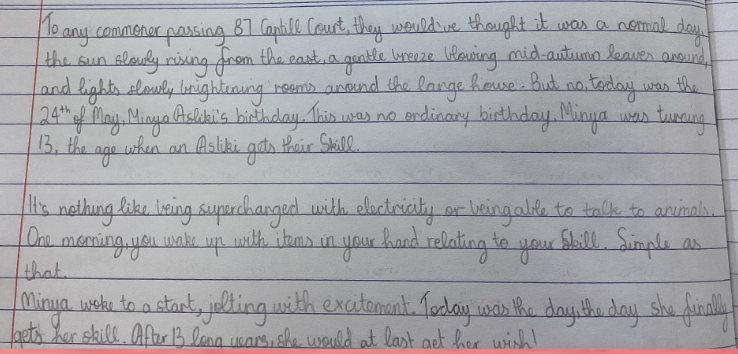 To any commoner passing 87 Captill Court, they would've thought it was a normal day,
the sun slowly rising from the east, a gentle breeze blowing mid-autumn leaves around,
and lights slowly brightening rooms around the large house. But no, today was the
24th of May, Minya Asliki's birthday. This was no ordinary birthday, Minya was turning
13, the age when an Asliki gets their Skill.
It's nothing like being supercharged with electricity or being able to talk to animals.
One morning, you wake up with items in your hand relating to your Skill. Simple as
that.
Minya woke to a start, jolting with excitement. Today was the day, the day she finally
gets her skill. After 13 long years, she would at last get her wish!